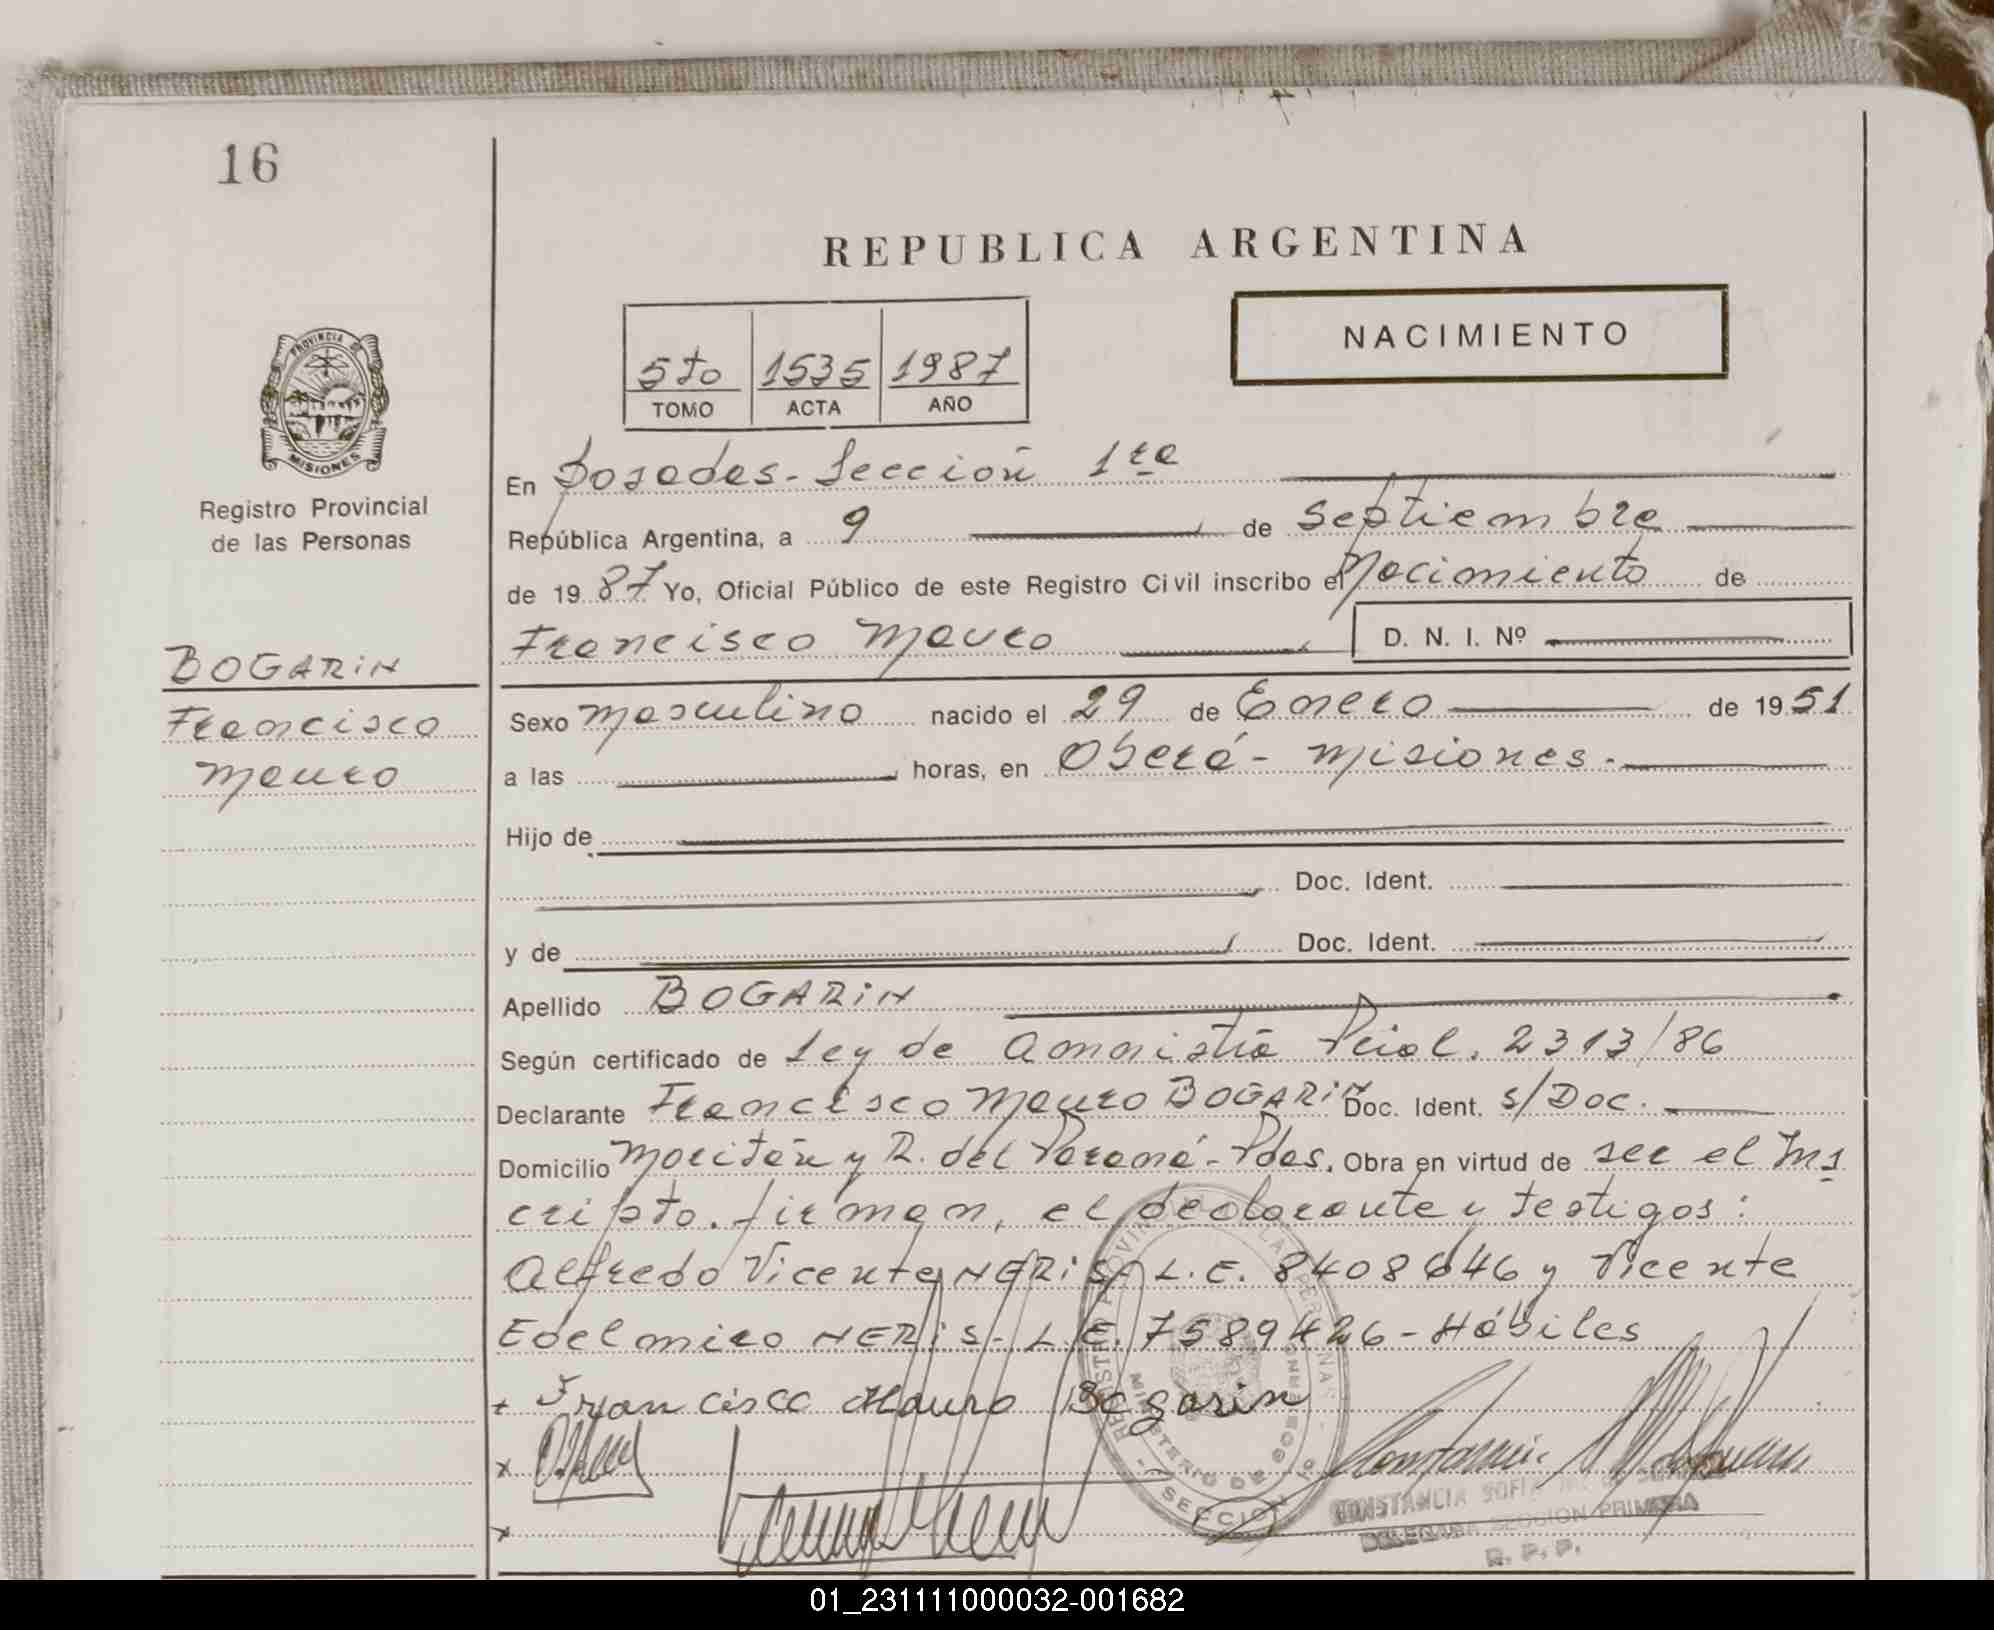 16
REPUBLICA ARGENTINA
NACIMIENTO
5to 1535 1987
TOMO ACTA AÑO
PROVINCIA DE
MISIONES
Registro Provincial
de las Personas
En Posadas - Sección 1ra
República Argentina, a 9 de Septiembre
de 1987 Yo, Oficial Público de este Registro Civil inscribo el Nacimiento de
Francisco Mauro D. N. I. Nº
BOGARIN
Francisco
Mauro
Sexo masculino nacido el 29 de Enero de 1951
a las horas, en Oberá - Misiones.
Hijo de
Doc. Ident.
y de Doc. Ident.
Apellido BOGARIN
Según certificado de Ley de Amnistía Pcial. 2313/86
Declarante Francisco Mauro BOGARIN Doc. Ident. s/Doc.
Domicilio y R. del Paraná - Pdas. Obra en virtud de ser el Ins
cripto. Firman, el declarante y testigos:
Alfredo Vicente NERIS - L.E. 8408646 y Vicente
Edelmiro NERIS - L.E. 7589426 - Hábiles
+ Francisco Mauro Bogarin
x
x
REGISTRO PROVINCIAL DE LAS PERSONAS
MINISTERIO DE GOBIERNO
SECCION
CONSTANCIA SOFIA
DELEGADA SECCION PRIMERA
R. P. P.
01_231111000032-001682